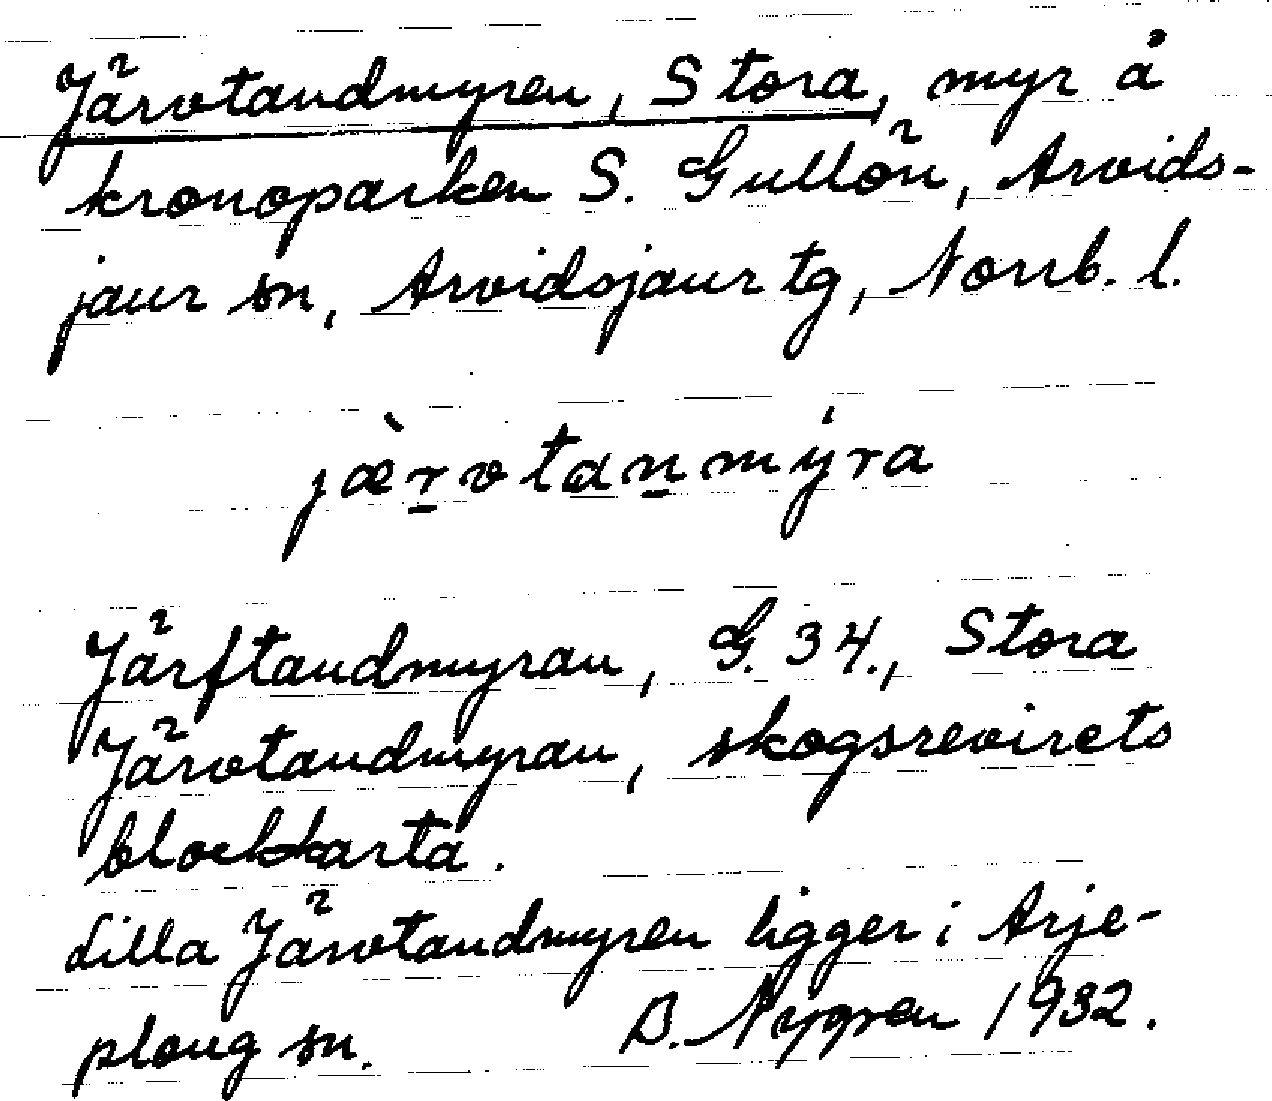 Järvtandmyren, Stora, myr å
kronoparken S. Gullön, Arvids-
jaur sn, Arvidsjaur tg, Norrb. l.
jæ̀r̲vtan̲mýra
Järftandmyran, G. 34., Stora
Järvtandmyran, skogsrevirets
blockkarta.
Lilla Järvtandmyren ligger i Arje-
ploug sn. B. Nygren 1932.